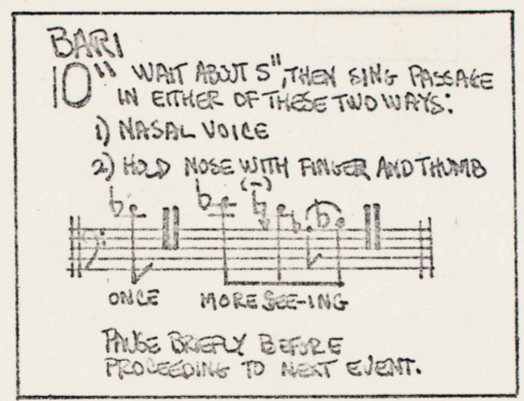 BARI
10" WAIT ABOUT 5", THEN SING PASSAGE
IN EITHER OF THESE TWO WAYS:
1) NASAL VOICE
2) HOLD NOSE WITH FINGER AND THUMB
ONCE MORE SEE-ING
PAUSE BRIEFLY BEFORE
PROCEEDING TO NEXT EVENT.